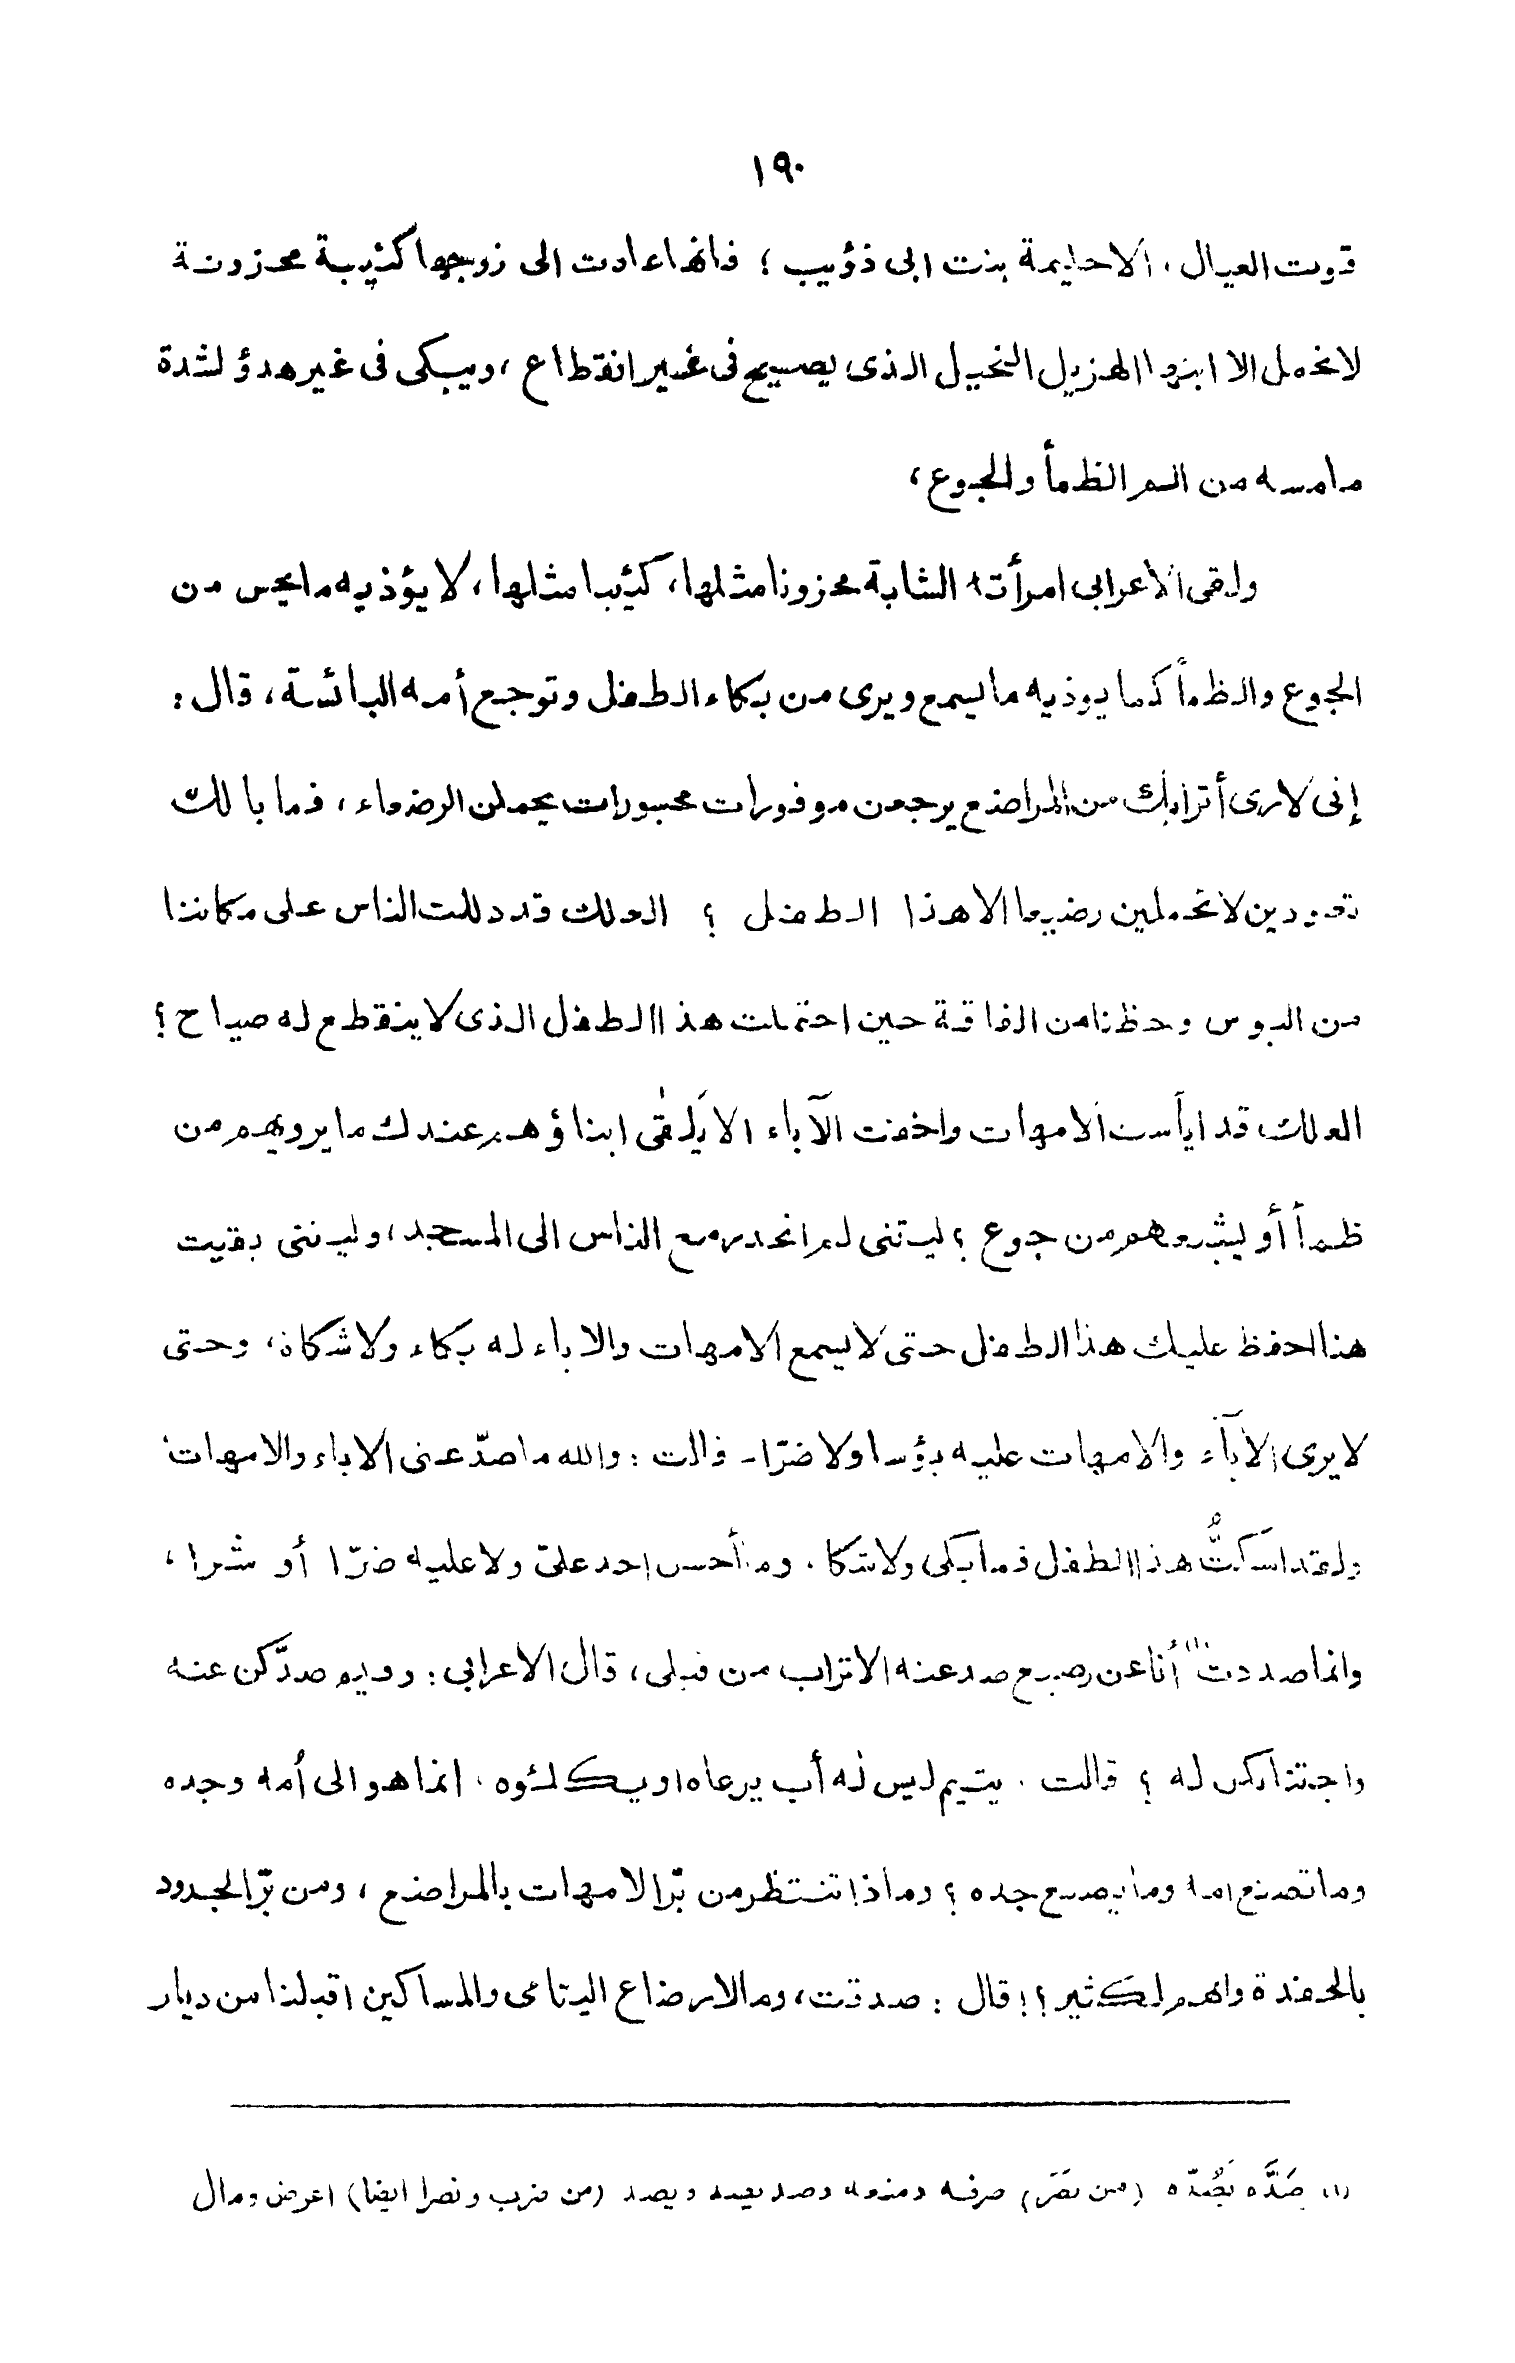 ١٩٠
قوت العيال، الا حليمة بنت ابى ذؤيب؛ فانها عادت الى زوجها كئيبة محزونة
لا تحمل الا ابنها الهزيل النحيل الذى يصيح فى غير انقطاع، ويبكى فى غير هدؤ لشدة
مامسه من الم الظمأ والجوع،
ولقى الاعرابى امرأته الشابة محزونا مثلها، كئيبا مثلها، لا يؤذيه مايحس من
الجوع والظمأ كما يوذيه ما يسمع ويرى من بكاء الطفل وتوجع أمه البائسة، قال:
إنى لارى أترابك من المراضع يرجعن موفورات محبورات يحملن الرضعاء، فما بالك
تعودين لا تحملين رضيعا الا هذا الطفل ؟ العلك قد دللت الناس على مكاننا
من البوس وحظنا من الفاقة حين احتملت هذا الطفل الذى لا ينقطع له صياح؟
العلك قد ايأست الامهات واخفت الآباء الا يَلقى ابناؤهم عندك ما يرويهم من
ظمأ أو يشبعهم من جوع؟ ليتنى لم انحدر مع الناس الى المسجد، وليتنى بقيت
هنا لحفظ عليك هذا الطفل حتى لا يسمع الامهات والاباء له بكاء ولا شكاة، وحتى
لا يرى الآباء والامهات عليه بؤسا ولا ضرّا۔ قالت: والله ماصدّ عنى الاباء والامهات
ولقد اسَكتُّ هذا الطفل فما بكى ولا شكا. وما أحس احد علىّ ولا عليه ضرّا أو شرا،
وانما صددت (١) أنا عن رضيع صد عنه الاتراب من قبلى، قال الاعرابى: وفيم صدّكن عنه
واجتنابكن له ؟ قالت. يتيم ليس له أب يرعاه او يكلئوه. انما هو الى أمه وجده
وما تصنع امه وما يصنع جده ؟ وماذا تنتظر من برّ الامهات بالمراضع، ومن برّ الجدود
بالحفدة وانهم لكثير؟! قال: صدقت، وما لارضاع اليتامى والمساكين اقبلنا من ديار
(١) صَدَّه يَصُدّه (من نصَر) صرفه ومنعه وصد يصد ويصد (من ضرب ونصر ايضا) اعرض ومال